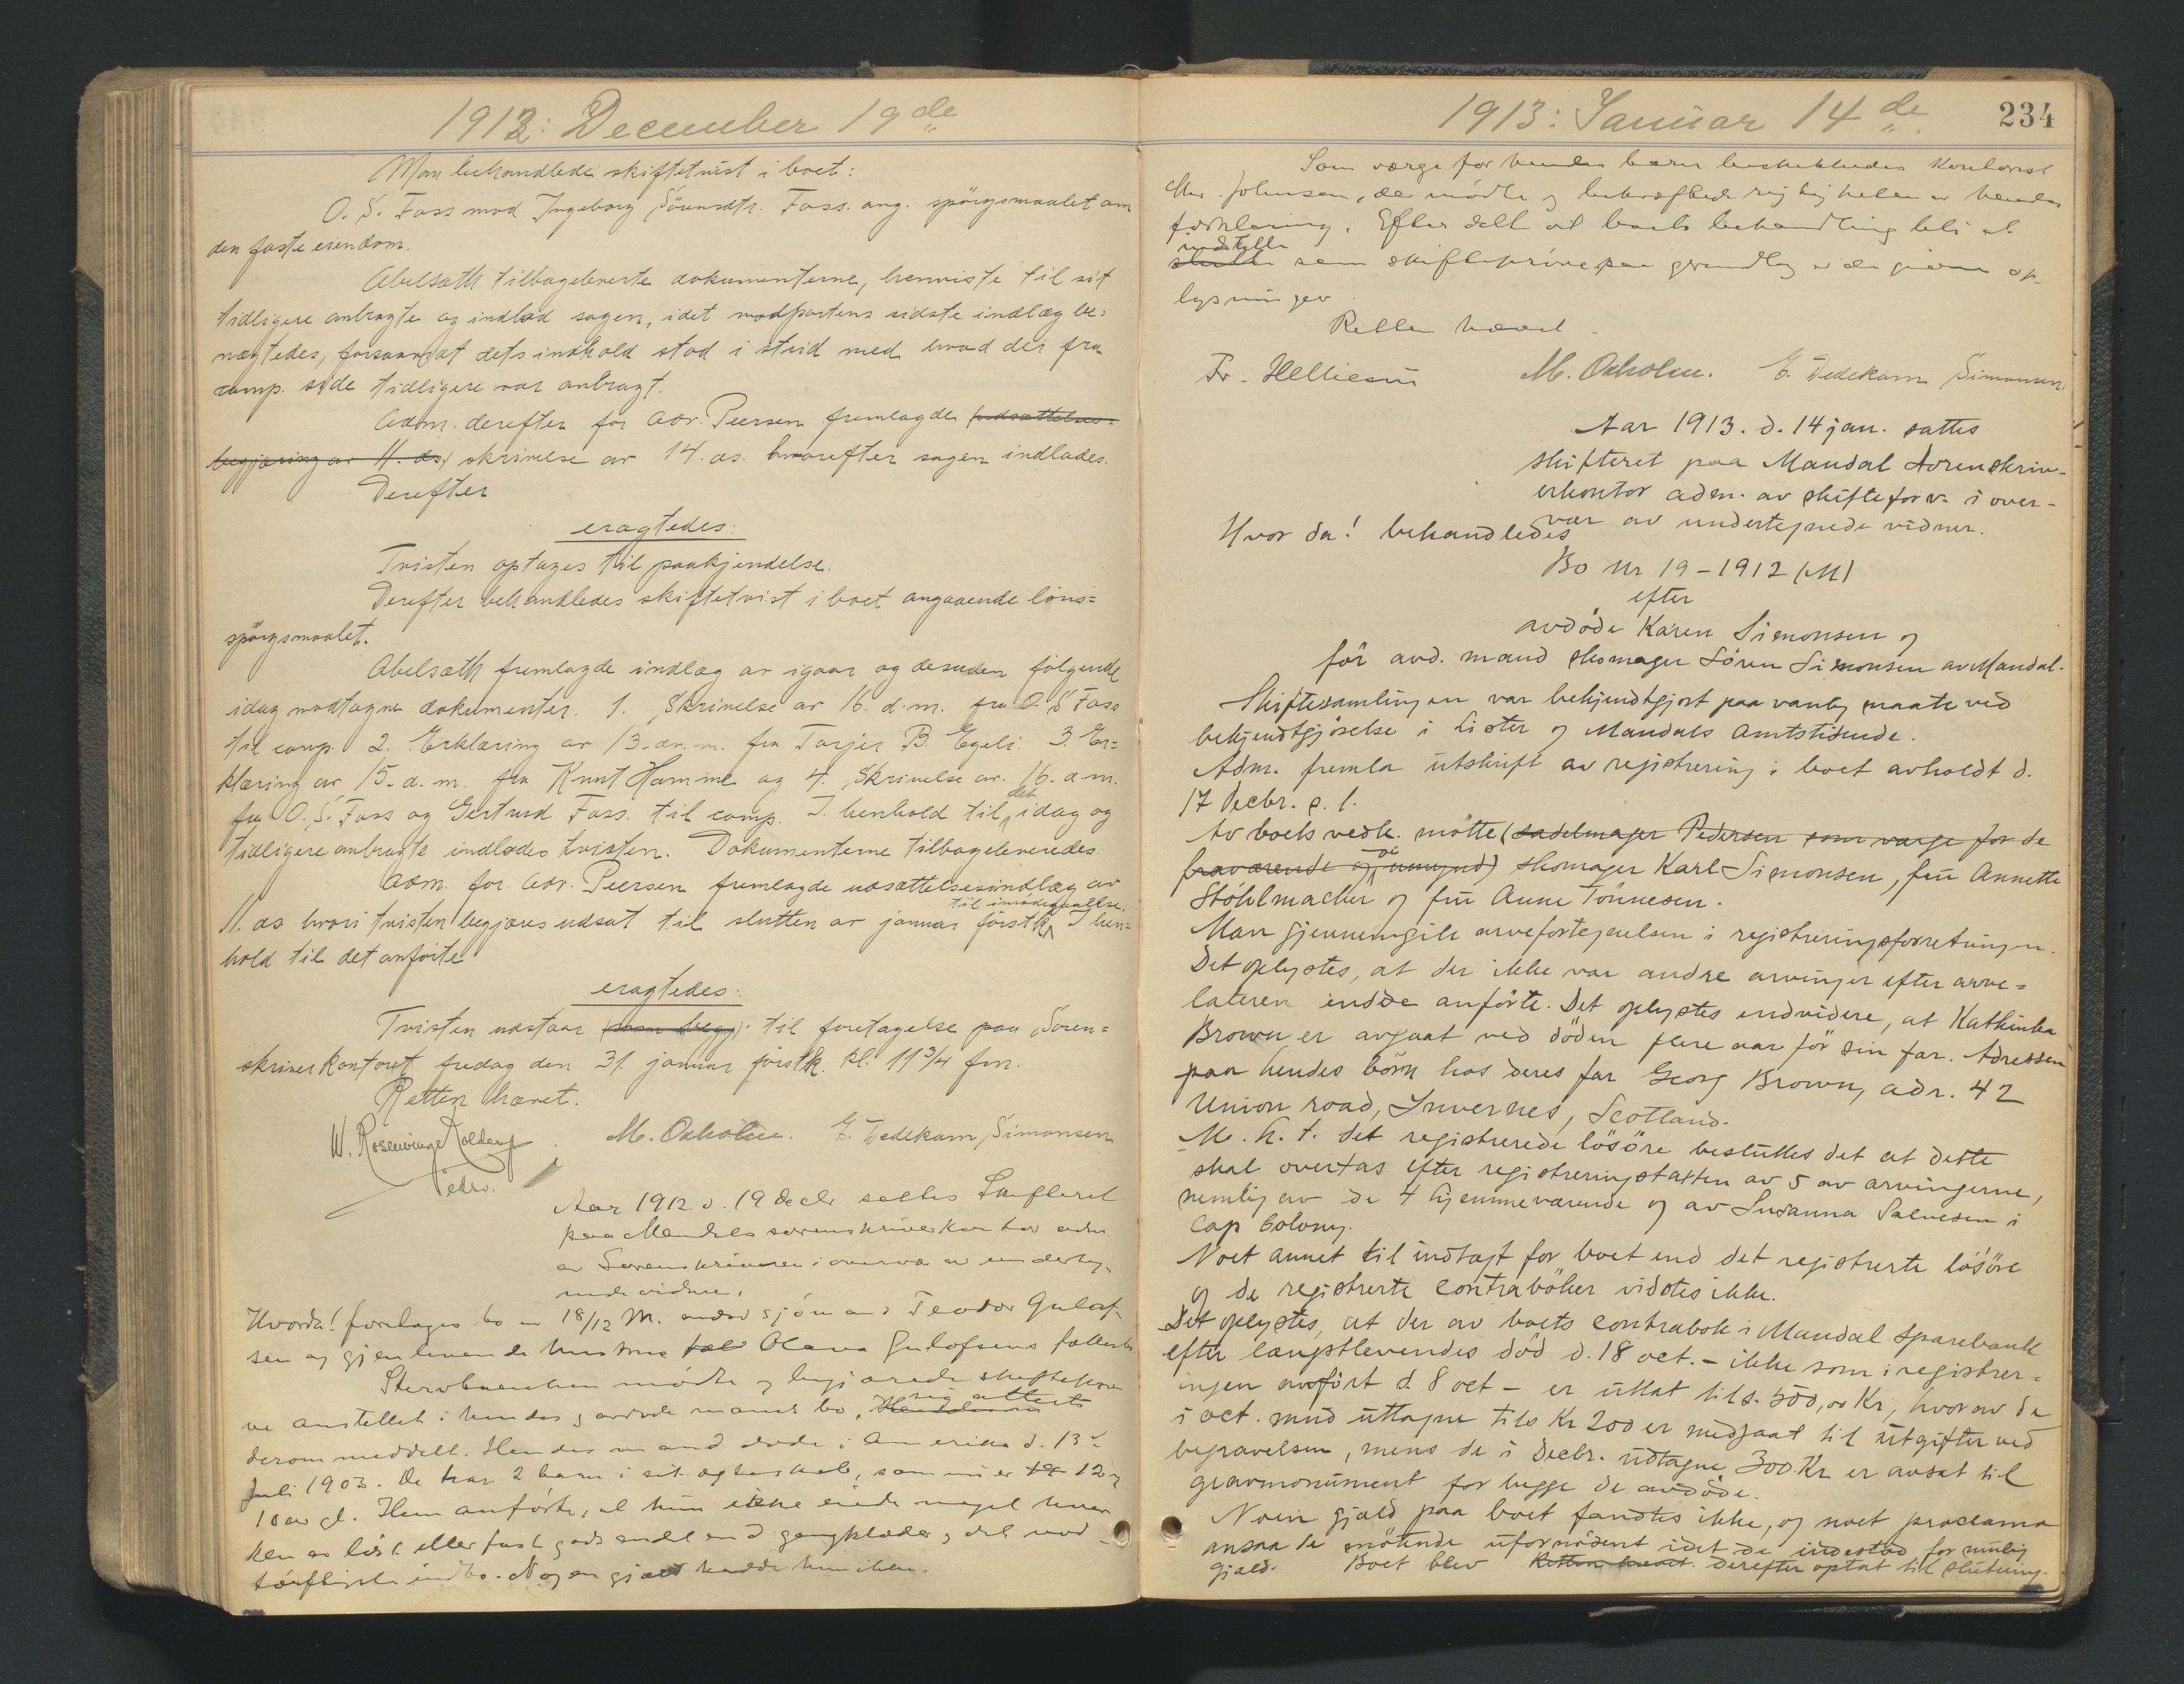 1912: December 19de
Man behandlede skiftetvist i boet:
O. S. Foss mod Ingeborg Sörensdtr. Foss. ang. spörgsmaalet om
den faste eiendom.
Abelsæth tilbageleverte dokumenterne, henviste til sit
tidligere anbragte og indlod sagen, idet modpartens sidste indlæg be=
nægtedes, forsaavidt dets indhold stod i strid med hvad der fra
comp. side tidligere var anbragt.
Adm. derefter for adv. Peersen fremlagde (udsættelses=
begjæring av 11. ds.) skrivelse av 14. ds. hvorefter sagen indlodes.
Derefter
eragtedes:
Tvisten optages til paakjendelse.
Derefter behandledes skiftetvist i boet angaaende löns=
spörgsmaalet.
Abelsæth fremlagde indlæg av igaar og desuden fölgende
idag modtagne dokumenter. 1. Skrivelse av 16. d.m. fra O. S Foss
til comp. 2. Erklæring av 13. ds. m. fra Tarjer B. Egeli. 3. Er=
klæring av 15. d. m. fra Knut Homme og 4. Skrivelse av. 16. d.m.
fra O. S. Foss og Gertrud Foss. til comp. I henhold til det idag og
tidligere anbragte indlodes tvisten. Dokumenterne tilbageleveredes.
Adm. for adv. Peersen fremlagde udsættelsesindlæg av
11. ds hvori tvisten begjæres udsat til slutten av januar förstk. til imödegaaelse. I hen=
hold til det anförte
eragtedes:
Tvisten udstaar (som begj.) til foretagelse paa Sören=
skriverkontoret fredag den 31. januar förstk. kl. 11 3/4 fm.
Retten hævet.
W. Rosenvinge Kolderup M. Oxholm. E. Dedekam Simonsen
Aar 1912 d. 19 decbr sattes Skifteret
paa Mandals sorenskriverkontor adm.
av Sorenskriveren i overvær av underteg-
nede vidner.
Hvorda! foretages bo nr 18/12 M. avdød sjömand Teodor Gulof-
sen og gjenlevende hustrue Olava Gulofsens fællesbo.
Stervboenken mödte og begjærede skifteprö
ve anstellet i hendes og avdøde mands bo, og attest
derom meddelt. Hendes mand døde i Amerika d. 13de
Juli 1903. De har 2 barn i sit ægteskab, som nu er 12 og
10 aar gl. Hun anførte, at hun ikke eiede noget hver
ken av löst eller fast gods andet end gangklæder og det nød-
törftigste indbo. Nogen gjæld hadde hun ikke.
1913: Januar 14de. 234
Som værge for hendes barn beskikkedes Kontorist
Johnsen, der mødte og bekræftede rigtigheten av hendes
forklaring. Efter dette vil boets behandling bli at
indstille som skifteprøve paa grundlag av de givne op-
lysninger.
Retten hævet.
Fr. Helliesen M. Oxholm. E. Dedekam Simonsen
Aar 1913. d. 14 jan. sattes
skifteret paa Mandal Sorenskriv-
erkontor adm. av skifteforv. i over-
vær av undertegnede vidner.
Hvor da! behandledes
Bo Nr 19-1912 (M)
efter
avdöde Karen Simonsen og
för avd. mand skomager Sören Simonsen av Mandal.
Skiftesamlingen var bekjendtgjort paa vanlig maate ved
bekjendtgjörelse i Lister og Mandals Amtstidende.
Adm. fremla utskrift av registrering i boet avholdt d.
17 Decbr. s. l.
Av boets vedk. mötte (sadelmager Pedersen som værge for de
fraværende og de umynd) skomager Karl Simonsen, frü Annette
Stöhlmacher og frü Anne Tönnesen.
Man gjennemgik arvefortegnelsen i registreringsforretningen.
Det oplystes, at der ikke var andre arvinger efter arve=
lateren end de anförte. Det oplystes endvidere, at Kathinka
Brown er avgaat ved döden flere aar för sin far. Adressen
paa hendes börn hos deres far Georg Brown, adr. 42
Union road, Invernes, Scotland.
M. h. t. det registrerede lösöre besluttes det at dette
skal overtas efter registreringstaxten av 5 av arvingerne,
nemlig av de 4 hjemmeværende og av Susanna Salvesen i
Cap Colony.
Noet annet til indtægt for boet end det registrerte lösöre
og de registrerte contraböker vidstes ikke.
Det oplystes, at der av boets contrabok i Mandal Sparebank
efter længstlevendes död d. 18 oct. - ikke som i registrer=
ingen anfört d. 8 oct - er uttat tils. 500,00 Kr, hvorav de
i oct. mnd uttagne tils Kr 200 er medgaat til utgifter ved
begravelsen, mens de i Decbr. udtagne 300 Kr er avsat til
gravmonument for begge de avdöde.
Noen gjæld paa boet fandtes ikke, og noet proclama
ansaa de mötende ufornödent idet de indestod for mulig
gjæld. Boet blev Retten hævet. derefter optat til slutning.